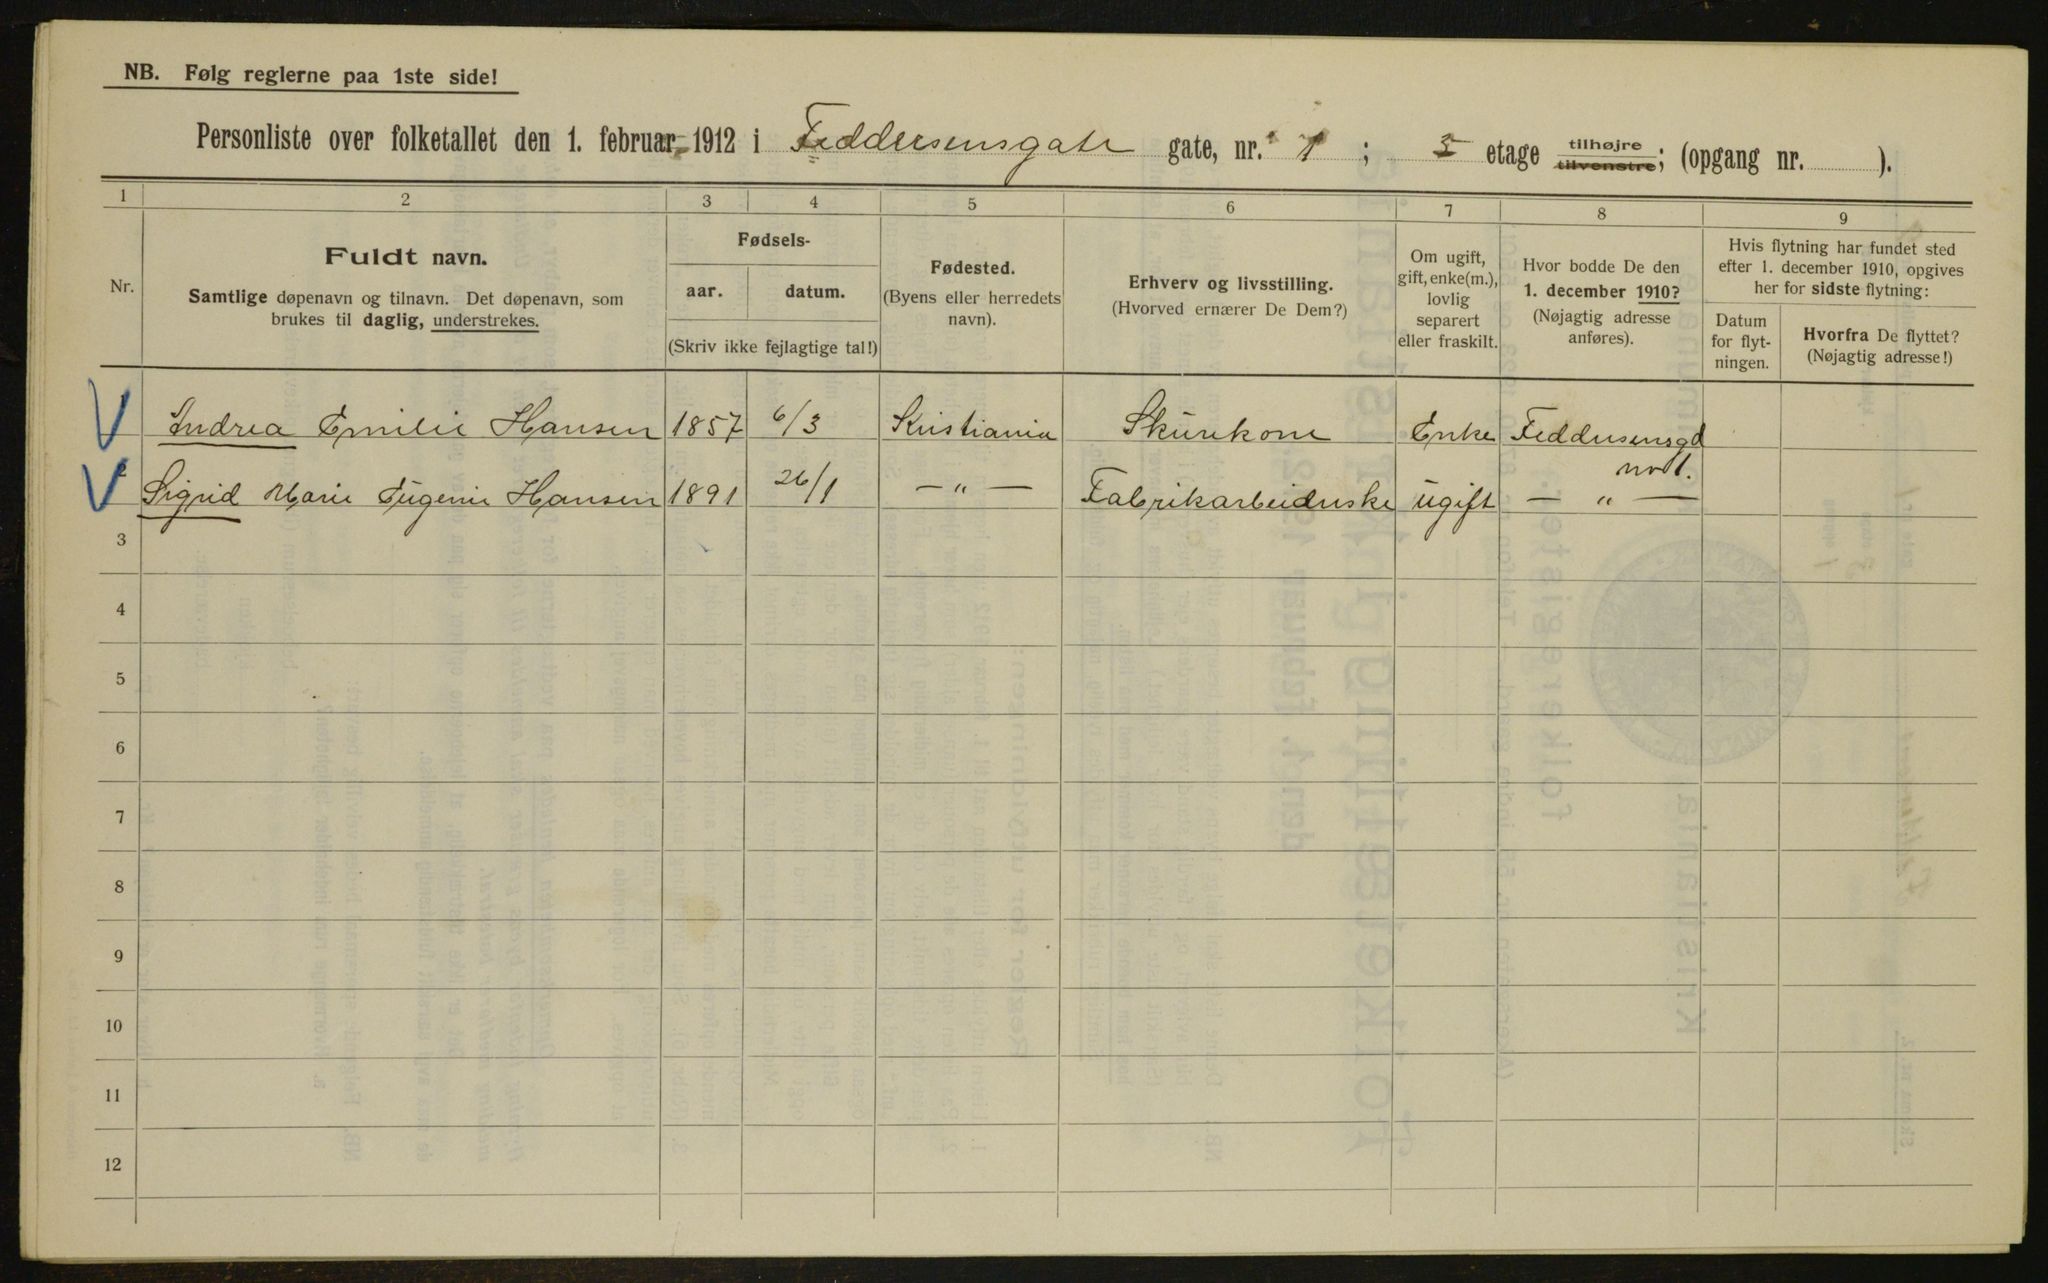 NB. Følg reglerne paa 1ste side!
Personliste over folketallet den 1. februar 1912 i Feddersensgate gate, nr. 1 ; 3 etage tilhøjre tilvenstre; (opgang nr. ).
1 2 3 4 5 6 7 8 9
Nr.
Fuldt navn.
Samtlige døpenavn og tilnavn. Det døpenavn, som
brukes til daglig, understrekes.
Fødsels-
aar. datum.
(Skriv ikke fejlagtige tal!)
Fødested.
(Byens eller herredets
navn).
Erhverv og livsstilling.
(Hvorved ernærer De Dem?)
Om ugift,
gift, enke(m.),
lovlig
separert
eller fraskilt.
Hvor bodde De den
1. december 1910?
(Nøjagtig adresse
anføres).
Hvis flytning har fundet sted
efter 1. december 1910, opgives
her for sidste flytning:
Datum
for flyt-
ningen.
Hvorfra De flyttet?
(Nøjagtig adresse!)
Andrea Emilie Hansen 1857 6/3 Kristiania Skurekone Enke Feddersensgd
no 1.
2 Sigrid Marie Eugenie Hansen 1891 26/1 — " — Fabrikarbeiderske ugift — " —
3
4
5
6
7
8
9
10
11
12